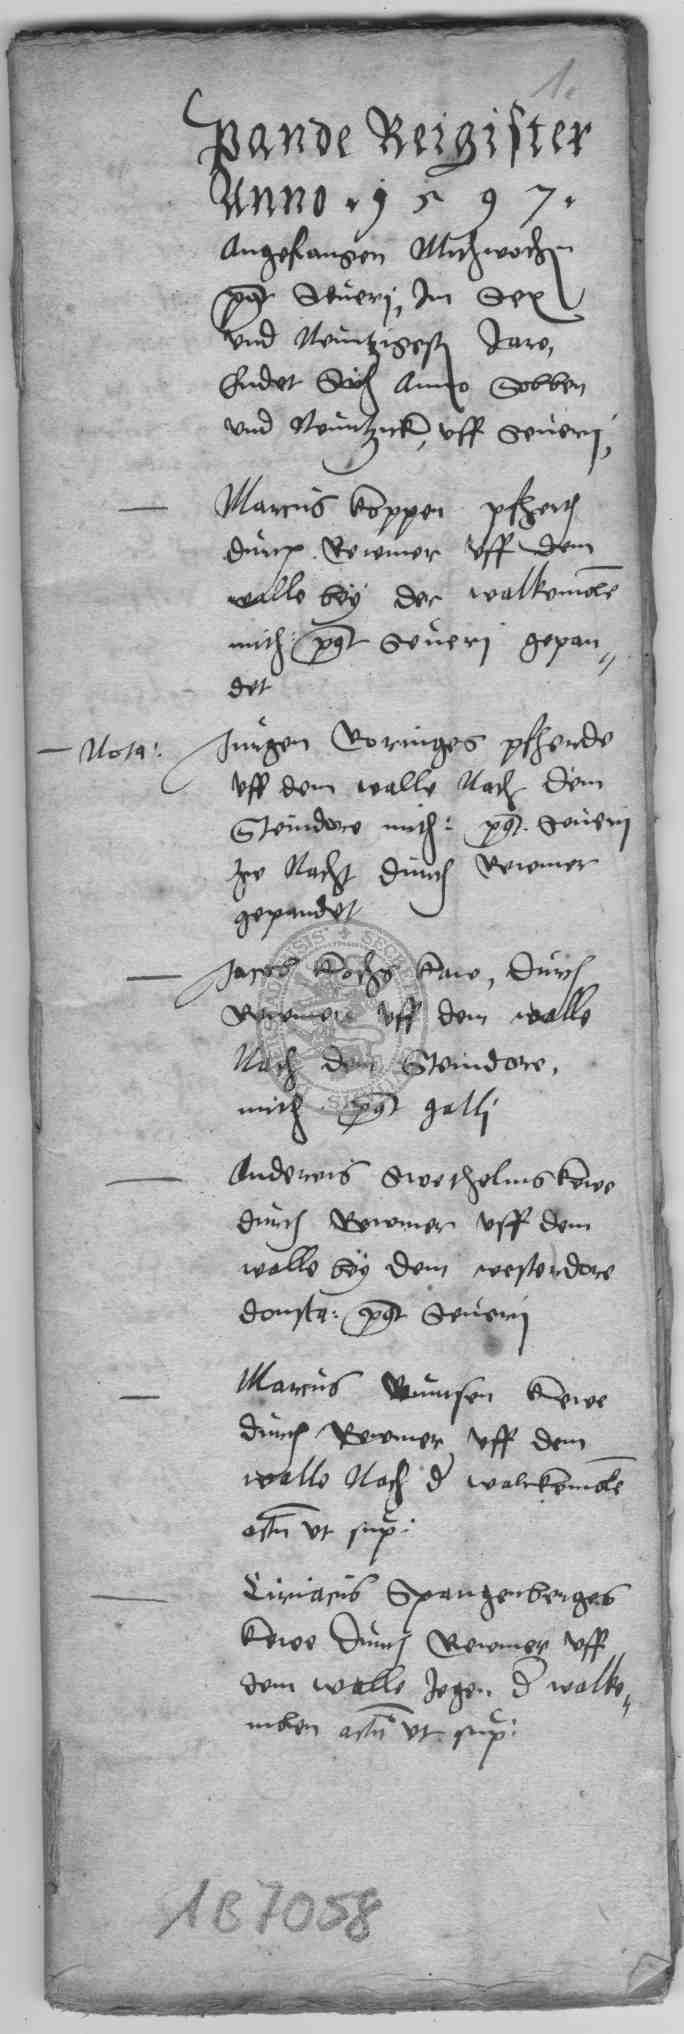 1.
Pande Reigister
Anno 1597.
Angefangen Mithwochen
post Seueri, Im Sex
vnd Neuntzigesten Jare,
Endet Sich Anno Sobben
vnd Neuntzick, vff Seuerij,
Marcus Koppen pfherth
durch Rewmer vff dem
walle bey der walkemole
mith: post Seuerj gepan„
det
Nota: Jurgen Voringes pfherde
vff dem walle Nach dem
Steindore mith: post Seuerij
Zu Nacht durch Rewmer
gepandet
Jacob Kochs Kuwe, durch
Rewmer vff dem walle
Nach dem Steindore,
mith post galli
Anderwis Swethelms Kewe
durch Rewmer vff dem
walle bey dem westerdore
donsta: post Seuerij
Marcus Kewe
durch Rewmer vff dem
walle Nach d walckemole
actu vt sup:
Ciriacus Spangenberges
Kewe durch Rewmer vff
dem walle Jegen d walke„
molen actu vt sup:
1B7058